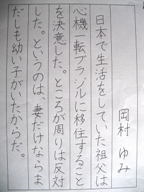 岡村 ゆみ
日本で生活をしていた祖父は
心機一転ブラジルに移住すること
を決意した。ところが周りは反対
した。というのは、妻だけならま
だしも幼い子がいたからだ。